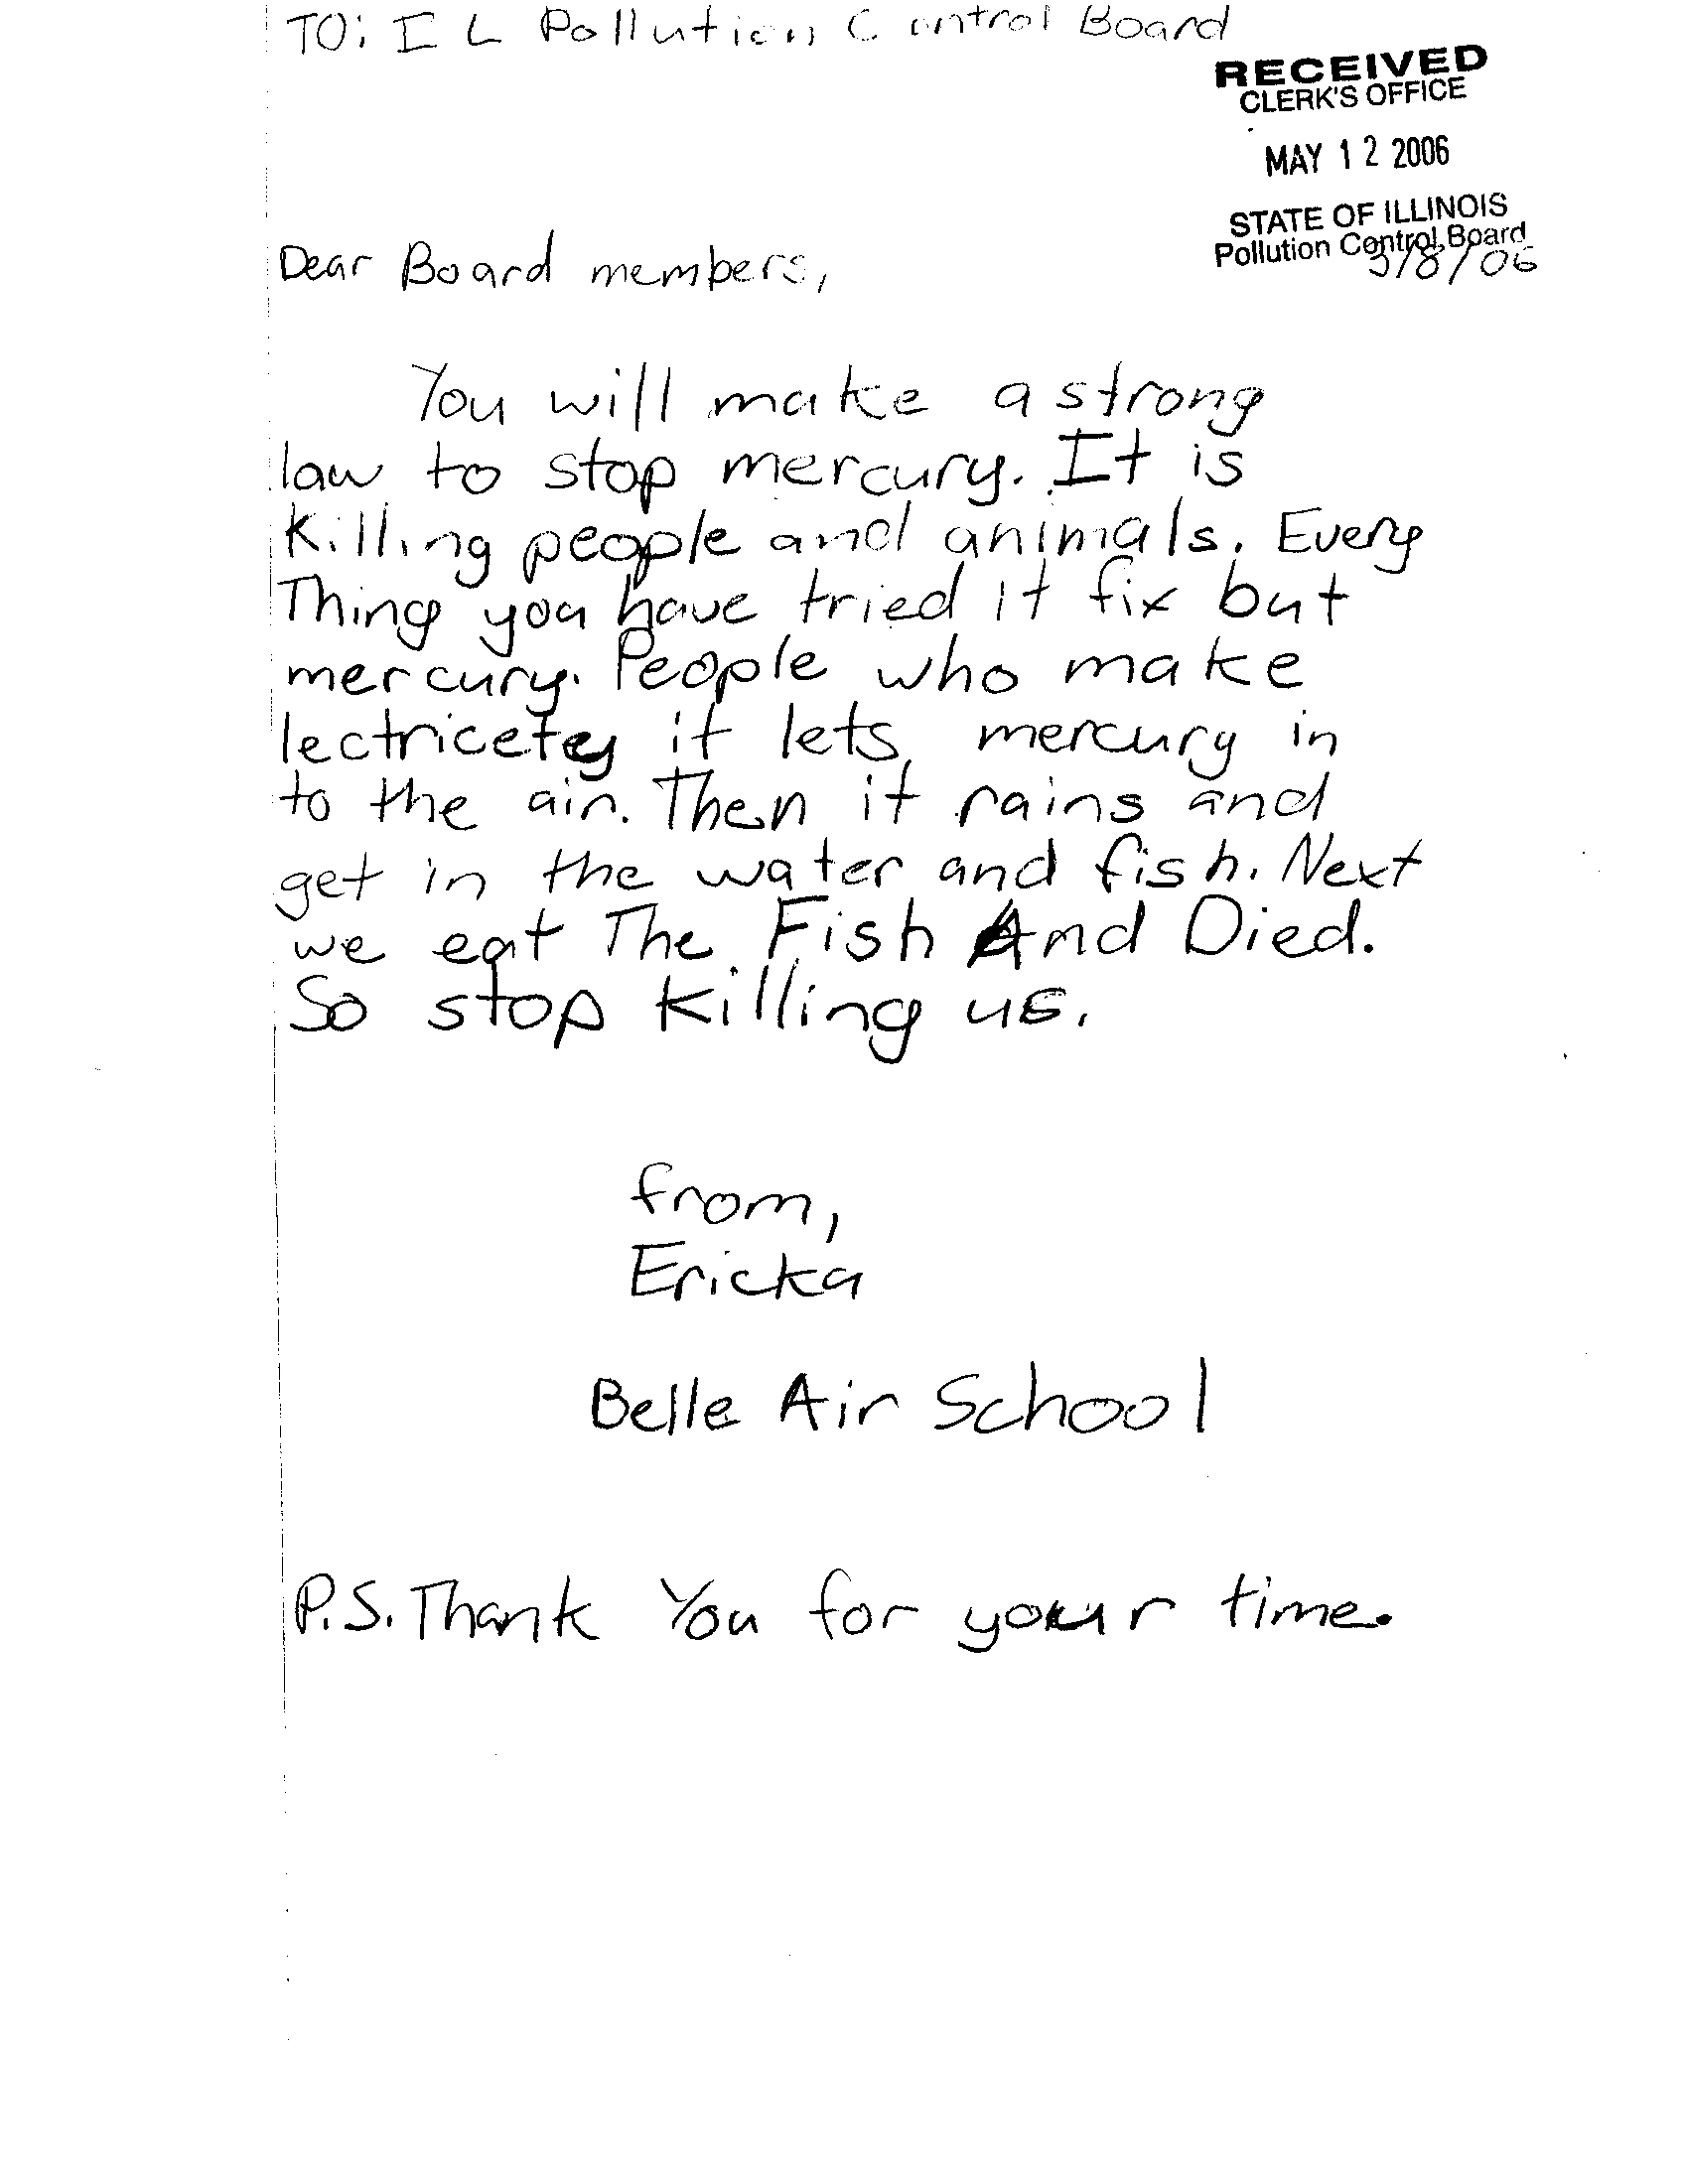 TO: IL Pollution Control Board
RECEIVED
CLERK'S OFFICE
MAY 12 2006
STATE OF ILLINOIS
Pollution Control Board
/8/06
Dear Board members,
You will make a strong
law to stop mercury. It is
Killing people and animals. Every
Thing you have tried it fix but
mercury. People who make
lectricetey it lets mercury in
to the air. Then it rains and
get in the water and fish. Next
we eat The Fish And Died.
So stop killing us.
from,
Ericka
Belle Air School
P.S. Thank You for your time.